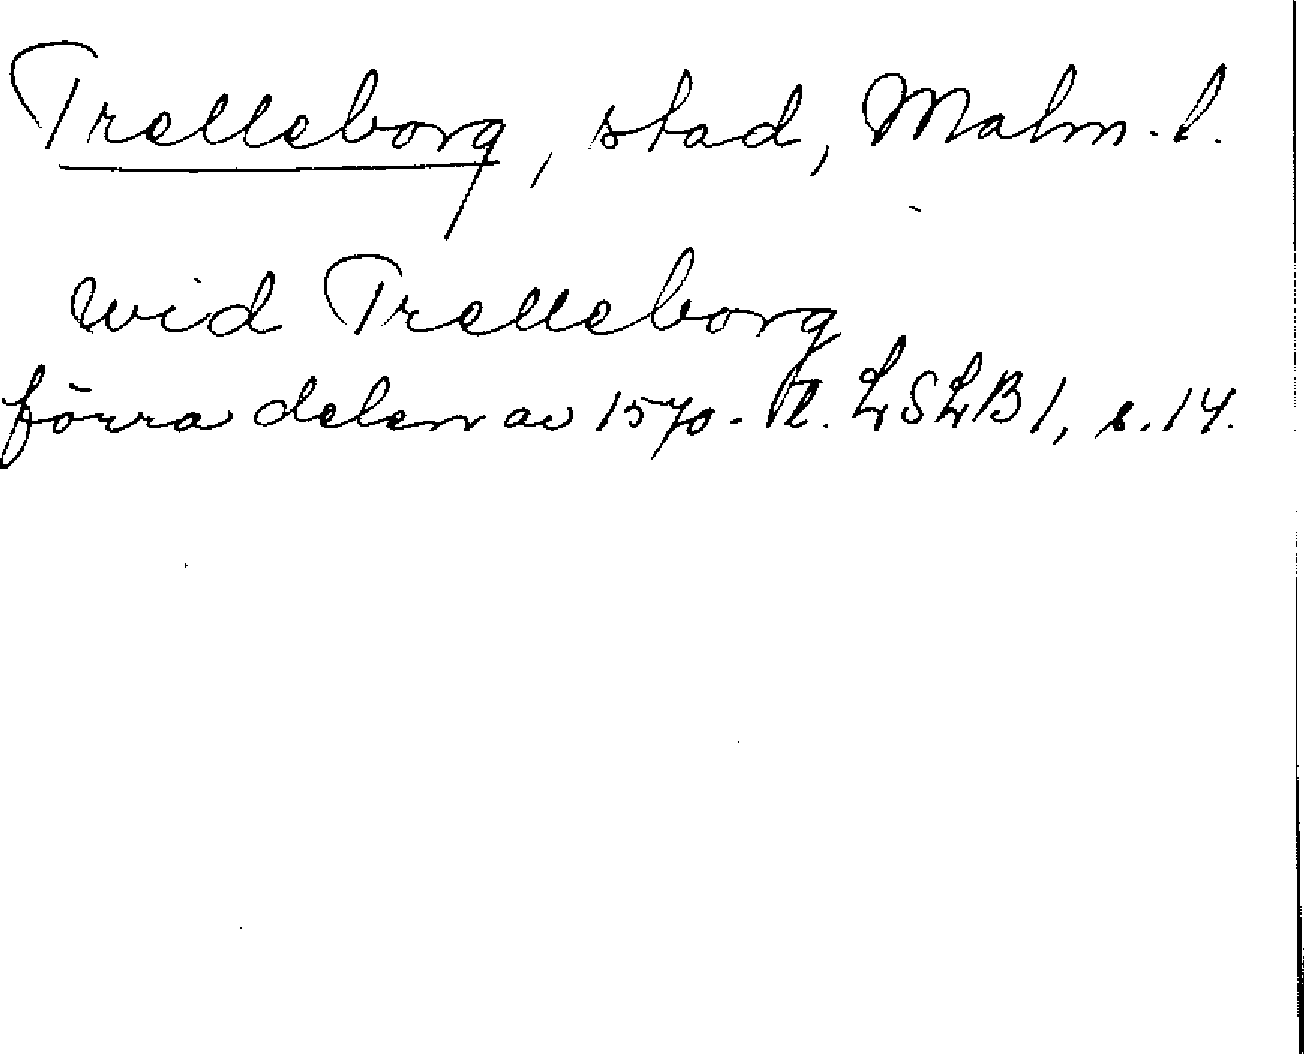 Trelleborg, stad, Malm. l.
wid Trelleborg
förra delen av 1570-t. LSLB 1, s. 14.